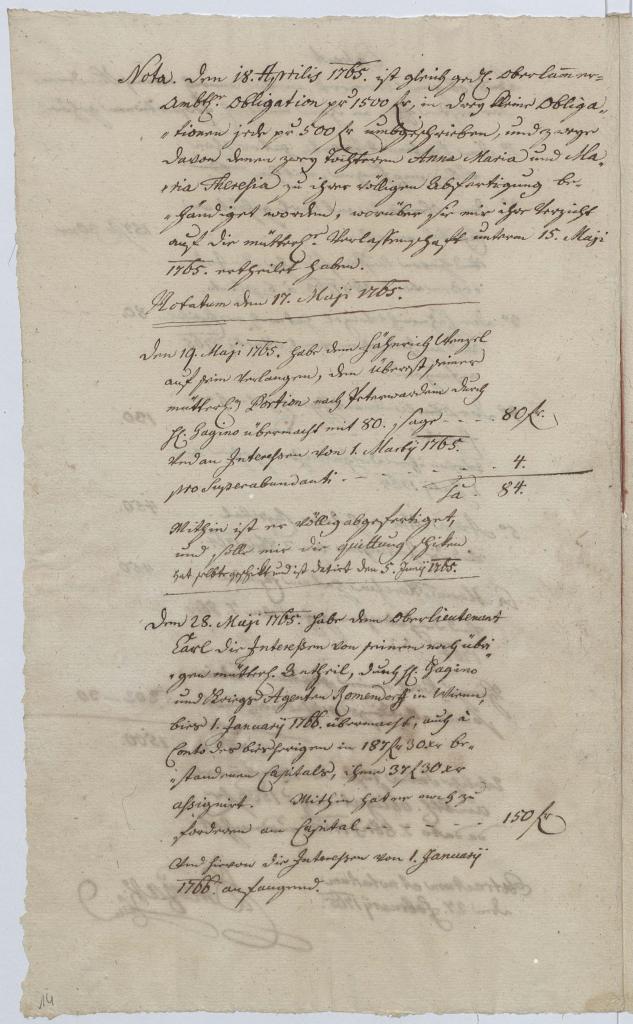 Nota. Den 18. Aprilis 1765. ist gleich gedl. Oberlammer=
Ambthr. Obligation pr 1500 fr, in drey kleine Obliga=
„tionen jede pr 500 fr umbgeschrieben, und zwege
davon denen zwey Töchteren Anna Maria und Ma„
„ria Theresia zu ihrer völligen Abfertigung be=
„händiget worden, worüber sie mir ihre Verzicht
auf die mütterl. Verlassenschaft unterm 15. Maji
1765. ertheilet haben.
Notatum den 17. Maji 1765.
Den 19. Maji 1765. habe dem Fähnrich Wenzel
auf sein Verlangen, den Überrest seiner
mütterl. Portion nach Peterwardein durch
H. Gagino übermacht mit 80. sage - - - 80 fr.
Und an Interessen von 1. Martij 1765.
pro Superabundanti. - - - - - 4.
Sa. 84.
Mithin ist er völlig abgefertiget,
und solle mir die quittung schiken.
hat selbte geschikt und ist datirt den 5. Junij 1765.
Den 28. Maji 1765. habe dem Oberlieutenant
Carl die Interessen von seinem noch übri„
„gen mütterl. Antheil, durch H. Gagino
und Kriegs Agenten Romendorff in Wienn,
bies 1. January 1766. übermacht, auch à
Conto des bishorigen in 187 fr 30 xr be=
„standenen Capitals, ihme 37 f 30 xr
assignirt. Mithin hat er noch zu
forderen am Capital - - - - - 150 fr
Und hievon die Interessen von 1. January
1766. anfangend.
14